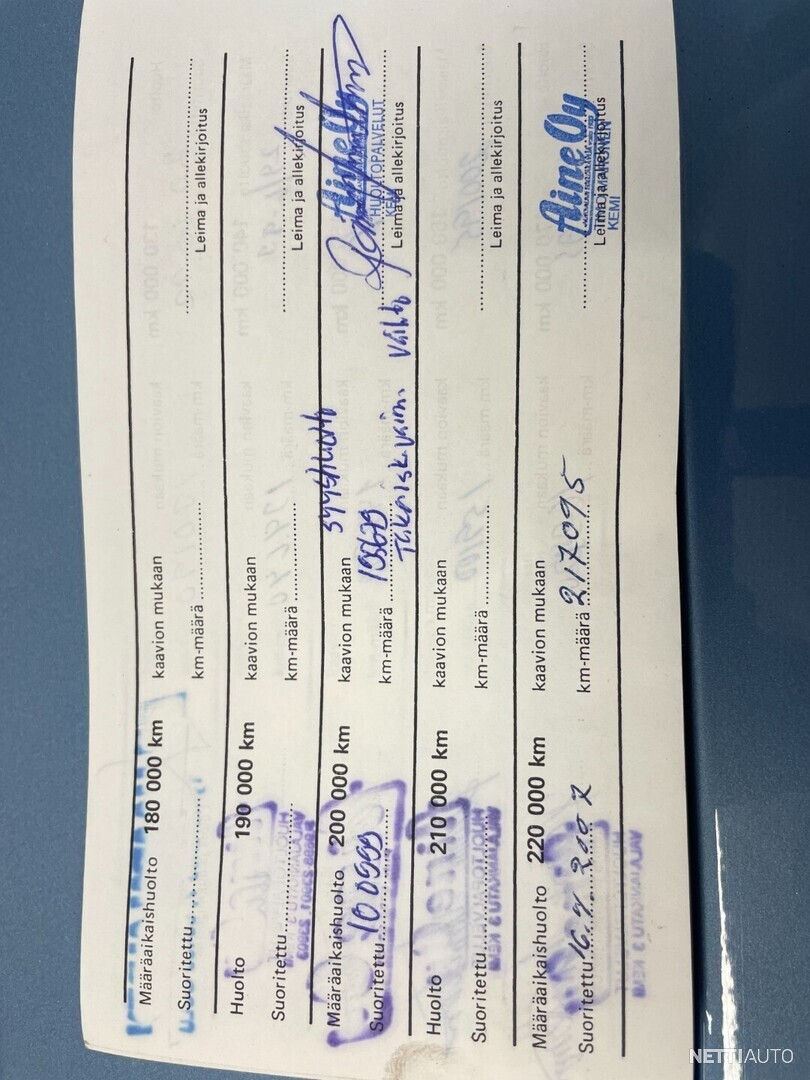 Määräaikaishuolto 180 000 km kaavion mukaan
Suoritettu.................... km-määrä .................... Leima ja allekirjoitus
Huolto 190 000 km kaavion mukaan
Suoritettu.................... km-määrä .................... Leima ja allekirjoitus
Määräaikaishuolto 200 000 km kaavion mukaan
Suoritettu 100999 km-määrä Leima ja allekirjoitus
HUOLTOPALVELUT
vaihto
Huolto 210 000 km kaavion mukaan
Suoritettu.................... km-määrä .................... Leima ja allekirjoitus
Määräaikaishuolto 220 000 km kaavion mukaan
Aine Oy
Suoritettu 16.7.2007 km-määrä 217095 Leima ja allekirjoitus
KEMI
NETTIAUTO